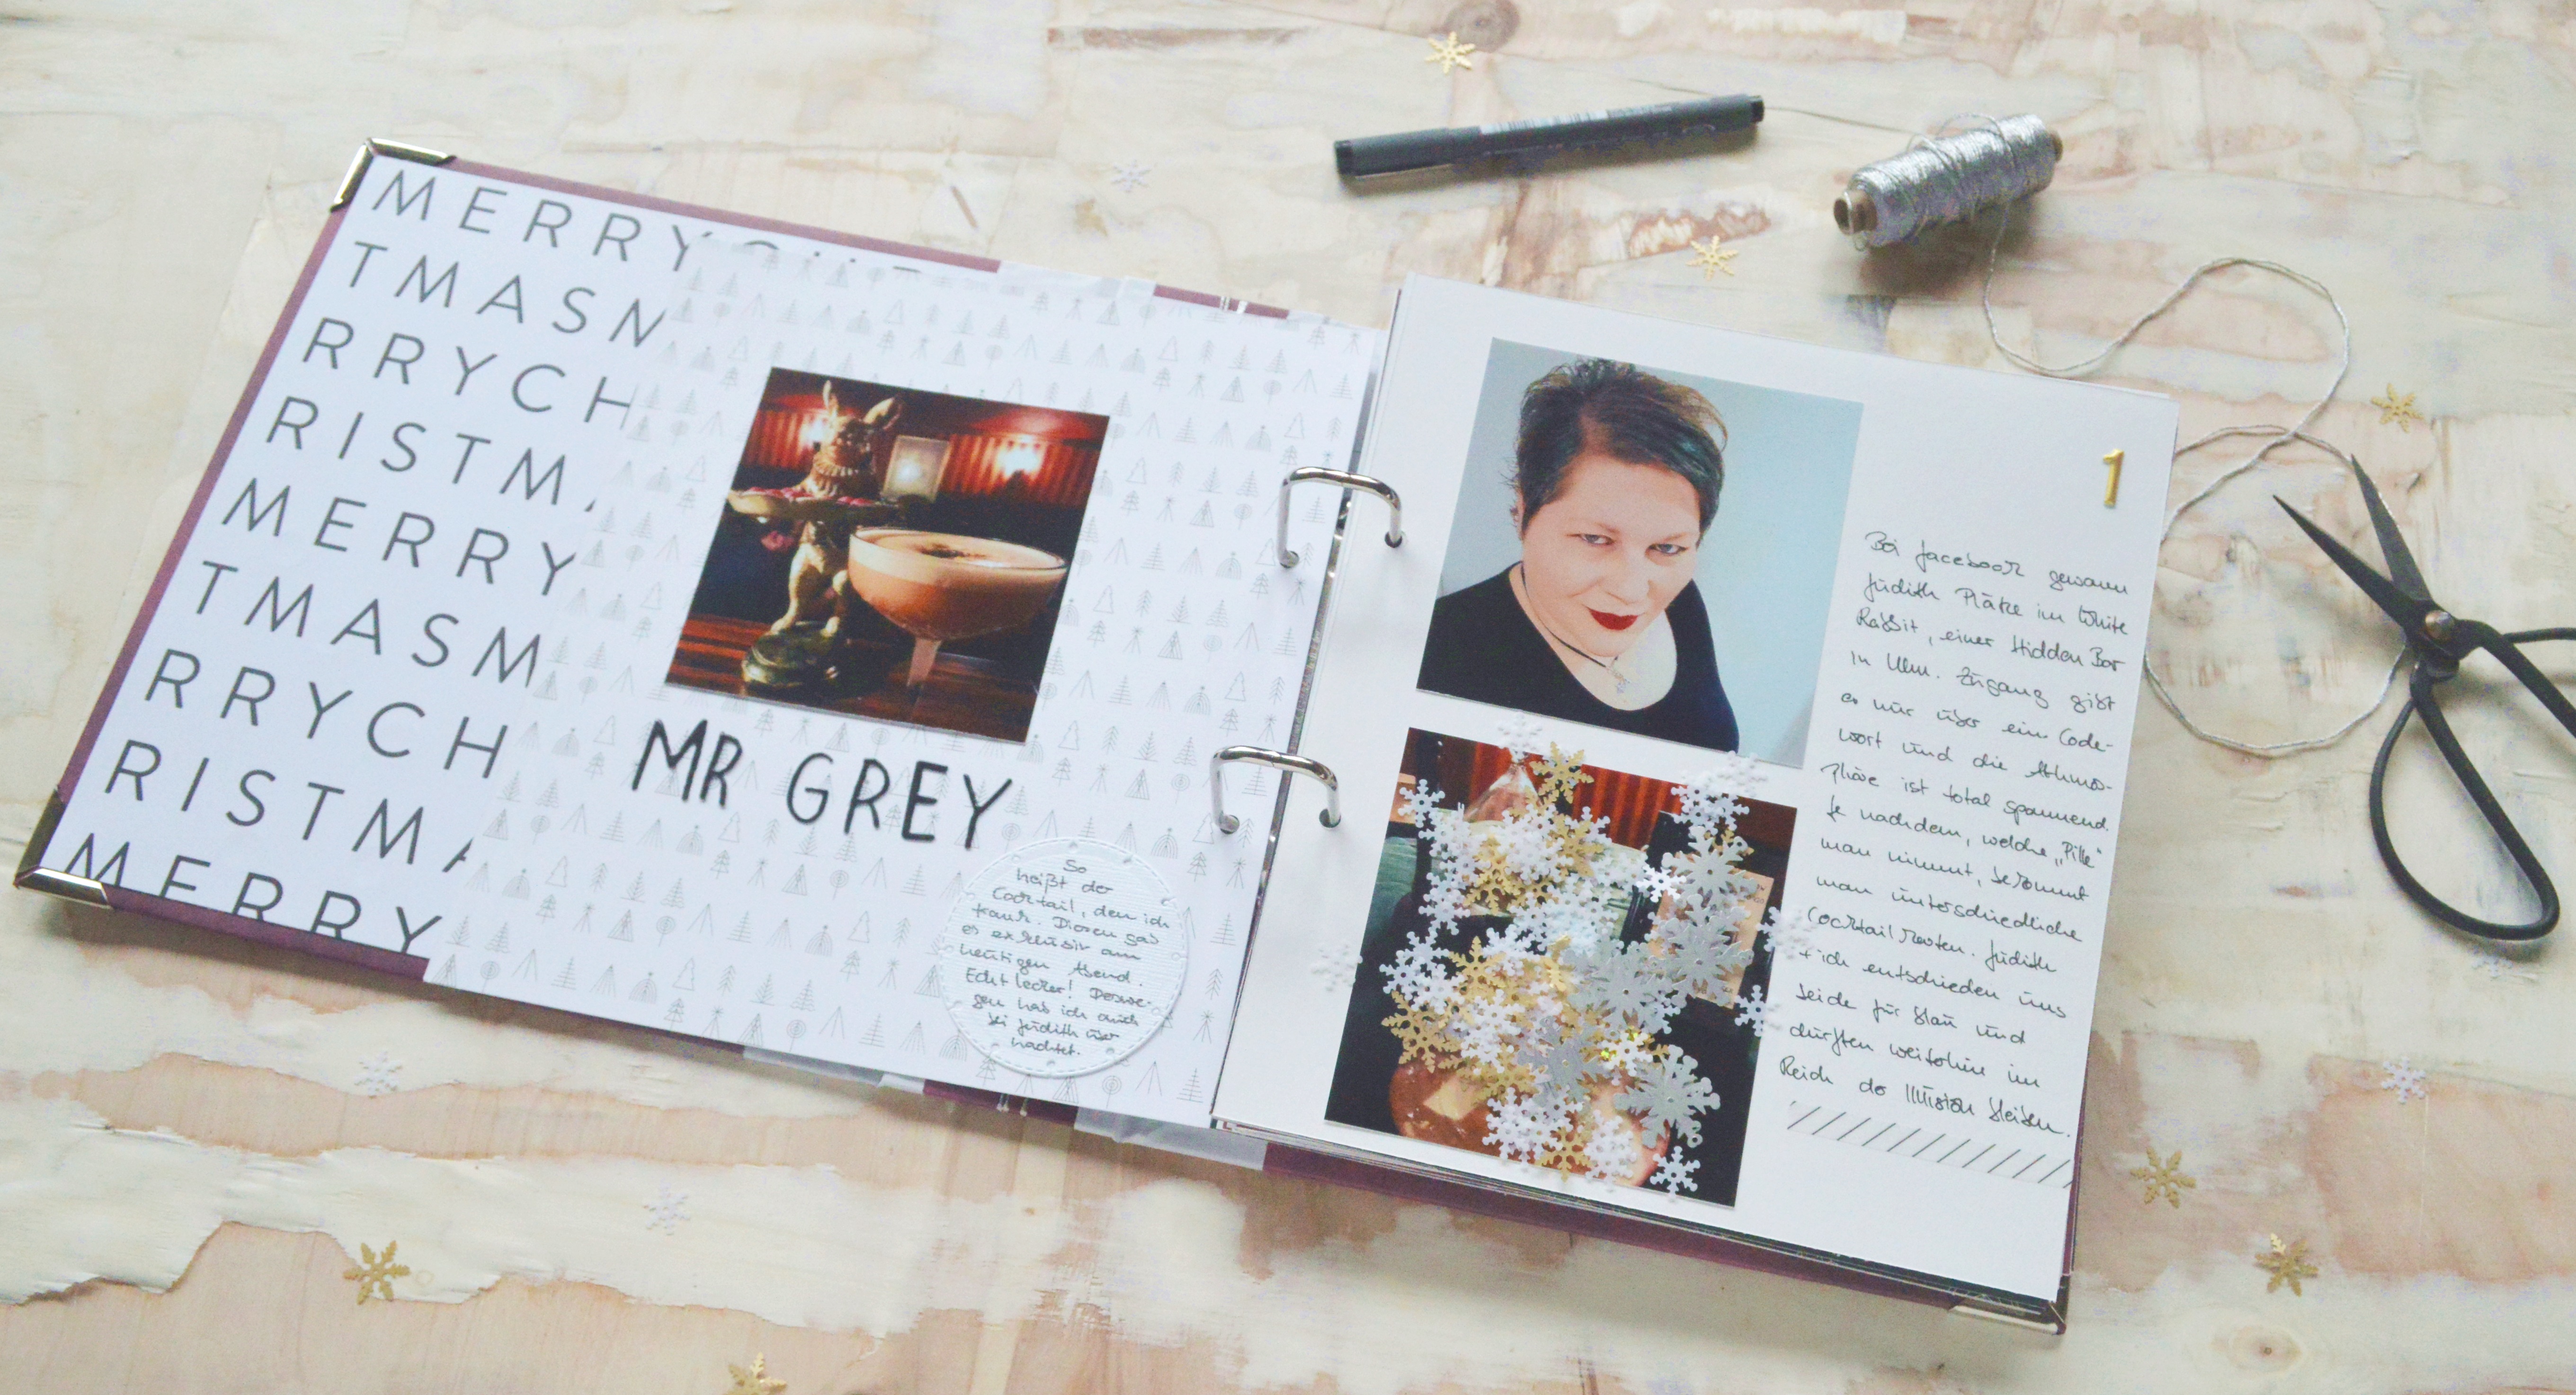 MERRYCH
TMASM
RRYCH
RISTM
MERRY
TMASM
RRYCH
RISTMA
MERRY
MR GREY
So
heißt der
Cocktail, den ich
trank. Diesen gab
es exklusiv am
heutigen Abend.
Echt lecker! Deswe-
gen hab ich auch
bei Judith über
nachtet.
1
Bei facebook gewann
Judith Plätze im White
Rabbit, einer Hidden Bar
in Ulm. Zugang gibt
es nur über ein Code-
wort und die Athmos-
phäre ist total spannend.
Je nachdem, welche „Pille"
man nimmt, bekommt
man unterschiedliche
Cocktailkarten. Judith
+ ich entschieden uns
beide für blau und
durften weiterhin im
Reich der Illusion bleiben.